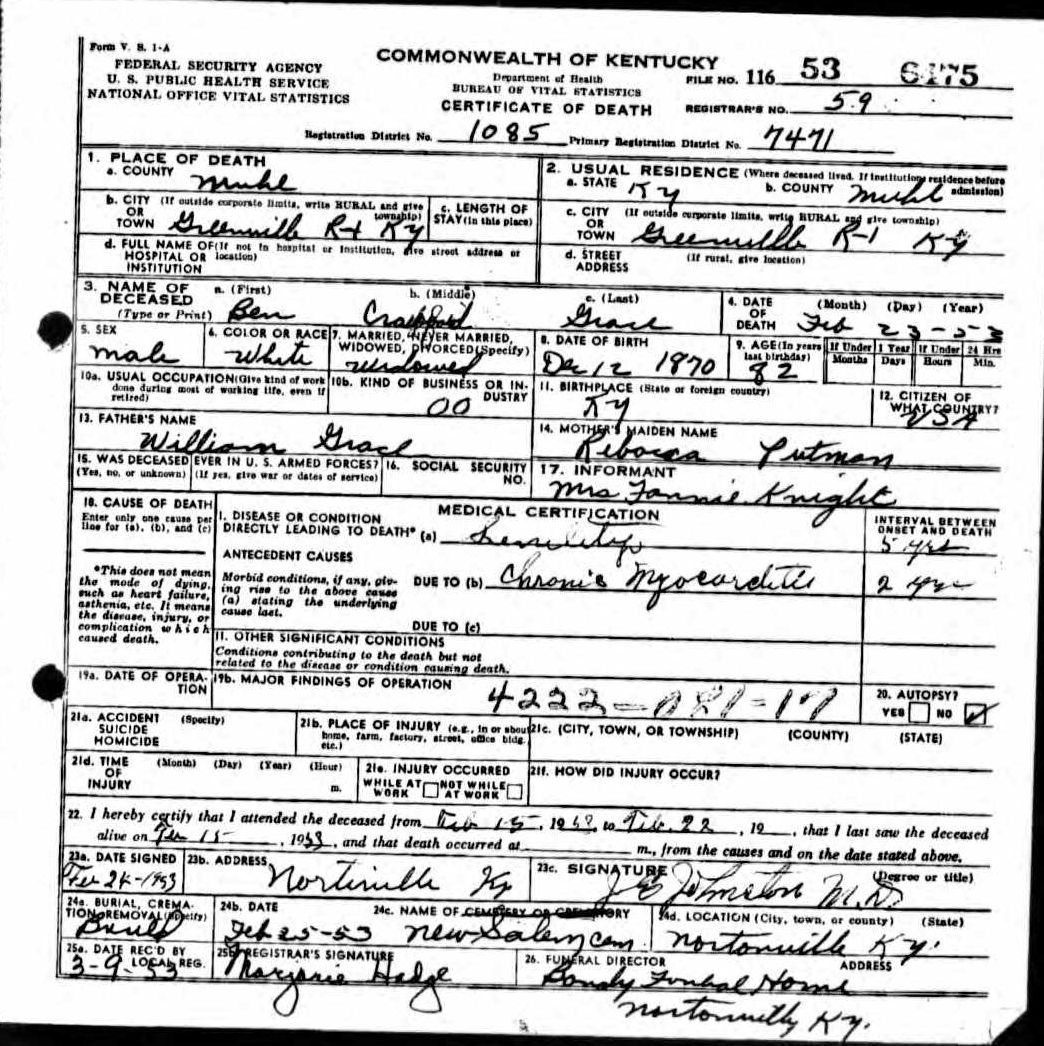 Form V. S. 1-A
FEDERAL SECURITY AGENCY
U. S. PUBLIC HEALTH SERVICE
NATIONAL OFFICE VITAL STATISTICS
COMMONWEALTH OF KENTUCKY
Department of Health
BUREAU OF VITAL STATISTICS
CERTIFICATE OF DEATH
FILE NO. 116 53 6475
REGISTRAR'S NO. 59
Registration District No. 1085 Primary Registration District No. 7471
1. PLACE OF DEATH
a. COUNTY Muhl
2. USUAL RESIDENCE (Where deceased lived. If institution: residence before admission)
a. STATE Ky b. COUNTY Muhl
b. CITY (If outside corporate limits, write RURAL and give township)
OR TOWN Greenville R-1 Ky
c. LENGTH OF STAY (in this place)
c. CITY (If outside corporate limits, write RURAL and give township)
OR TOWN Greenville R-1 Ky
d. FULL NAME OF (If not in hospital or institution, give street address or location)
HOSPITAL OR INSTITUTION
d. STREET ADDRESS (If rural, give location)
3. NAME OF DECEASED (Type or Print)
a. (First) Ben b. (Middle) c. (Last) Grace
4. DATE OF DEATH (Month) (Day) (Year) Feb 23-53
5. SEX male
6. COLOR OR RACE White
7. MARRIED, NEVER MARRIED, WIDOWED, DIVORCED (Specify) Widowed
8. DATE OF BIRTH Dec 12 1870
9. AGE (In years last birthday) 82
If Under 1 Year Months Days
If Under 24 Hrs Hours Min.
10a. USUAL OCCUPATION (Give kind of work done during most of working life, even if retired)
10b. KIND OF BUSINESS OR INDUSTRY 00
11. BIRTHPLACE (State or foreign country) Ky
12. CITIZEN OF WHAT COUNTRY? USA
13. FATHER'S NAME William Grace
14. MOTHER'S MAIDEN NAME Rebocca Putman
15. WAS DECEASED EVER IN U. S. ARMED FORCES?
(Yes, no, or unknown) (If yes, give war or dates of service)
16. SOCIAL SECURITY NO.
17. INFORMANT Mrs Fannie Knight
18. CAUSE OF DEATH
Enter only one cause per line for (a), (b), and (c)
*This does not mean the mode of dying, such as heart failure, asthenia, etc. It means the disease, injury, or complication which caused death.
MEDICAL CERTIFICATION
INTERVAL BETWEEN ONSET AND DEATH
I. DISEASE OR CONDITION DIRECTLY LEADING TO DEATH* (a) 5 yrs
ANTECEDENT CAUSES
Morbid conditions, if any, giving rise to the above cause (a) stating the underlying cause last.
DUE TO (b) Chronic Myocarditis 2 yrs
DUE TO (c)
II. OTHER SIGNIFICANT CONDITIONS
Conditions contributing to the death but not related to the disease or condition causing death.
19a. DATE OF OPERATION
19b. MAJOR FINDINGS OF OPERATION
4222-
20. AUTOPSY?
YES NO
21a. ACCIDENT SUICIDE HOMICIDE (Specify)
21b. PLACE OF INJURY (e.g., in or about home, farm, factory, street, office bldg. etc.)
21c. (CITY, TOWN, OR TOWNSHIP) (COUNTY) (STATE)
21d. TIME OF INJURY (Month) (Day) (Year) (Hour) m.
21e. INJURY OCCURRED
WHILE AT WORK NOT WHILE AT WORK
21f. HOW DID INJURY OCCUR?
22. I hereby certify that I attended the deceased from Feb 15, to Feb. 22, 19 , that I last saw the deceased
alive on Feb 15, 1953, and that death occurred at m., from the causes and on the date stated above.
23a. DATE SIGNED Feb 24-1953
23b. ADDRESS Nortonville Ky
23c. SIGNATURE (Degree or title) J E Johnston M.D.
24a. BURIAL, CREMATION, REMOVAL (Specify)
24b. DATE Feb 25-53
24c. NAME OF CEMETERY OR CREMATORY New Salem Cem.
24d. LOCATION (City, town, or county) (State) Nortonville Ky.
25a. DATE REC'D BY LOCAL REG. 3-9-53
25b. REGISTRAR'S SIGNATURE Marjorie
26. FUNERAL DIRECTOR ADDRESS
Funeral Home
Nortonville Ky.